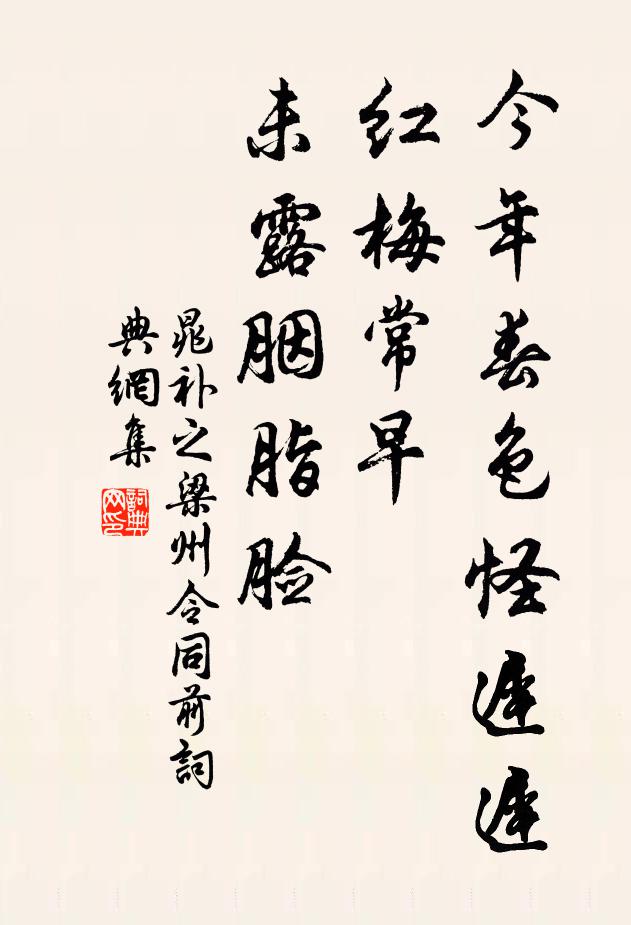 今年春色怪遲遲
红梅常早
未露胭脂脸
晁补之梁州令同前詞
典網集
詞典网印